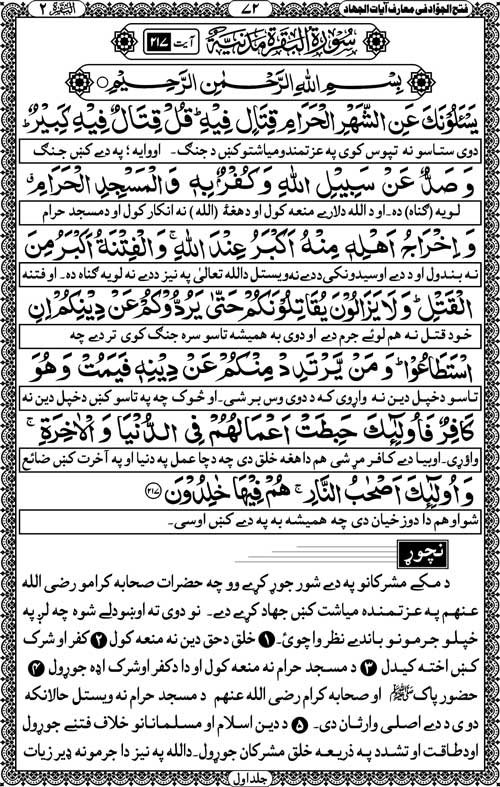 فتح الجوّاد في معارف آيات الجهاد ٧٢ البقرة ٢
سورة البقرة مدنية آیت ٢١٧
بسم الله الرّحمٰن الرّحيم
يَسْـَٔلُوْنَكَ عَنِ الشَّهْرِ الْحَرَامِ قِتَالٍ فِيْهِ ؕ قُلْ قِتَالٌ فِيْهِ كَبِيْرٌ ؕ
دوی ستاسو نه تپوس کوی په عزتمندو میاشتو کښ د جنګ۔ اووایه؛ په دے کښ جنګ
وَ صَدٌّ عَنْ سَبِيْلِ اللّٰهِ وَ كُفْرٌۢ بِهٖ وَ الْمَسْجِدِ الْحَرَامِ ۗ
لویه (ګناه) ده۔ او د الله دلارے منعه کول او دهغۀ (الله) نه انکار کول او د مسجد حرام
وَ اِخْرَاجُ اَهْلِهٖ مِنْهُ اَكْبَرُ عِنْدَ اللّٰهِ ۚ وَ الْفِتْنَةُ اَكْبَرُ مِنَ
نه بندول او د دے اوسیدونکی ددے نه ویستل دالله تعالیٰ په نیز ددے نه لویه ګناه ده۔ او فتنه
الْقَتْلِ ؕ وَ لَا يَزَالُوْنَ يُقَاتِلُوْنَكُمْ حَتّٰى يَرُدُّوْكُمْ عَنْ دِيْنِكُمْ اِنِ
خود قتل نه هم لوئے جرم دے او دوی به همیشه تاسو سره جنګ کوی تر دے چه
اسْتَطَاعُوْا ؕ وَ مَنْ يَّرْتَدِدْ مِنْكُمْ عَنْ دِيْنِهٖ فَيَمُتْ وَ هُوَ
تاسو دخپل دین نه واړوی که د دوی وس برشی۔ او څوک چه په تاسو کښ دخپل دین نه
كَافِرٌ فَاُولٰٓئِكَ حَبِطَتْ اَعْمَالُهُمْ فِى الدُّنْيَا وَ الْاٰخِرَةِ ۚ
واؤړی۔ اوبیا دے کافر مړ شی هم دا هغه خلق دی چه دچا عمل په دنیا او په آخرت کښ ضائع
وَ اُولٰٓئِكَ اَصْحٰبُ النَّارِ ۚ هُمْ فِيْهَا خٰلِدُوْنَ ٢١٧
شو اوهم دا دوزخیان دی چه همیشه به په دے کښ اوسی۔
نچوړ
د مکے مشرکانو په دے شور جوړ کړے وو چه حضرات صحابه کرامو رضی الله
عنهم په عزتمنده میاشت کښ جهاد کړے دے۔ نو دوی ته اوښودلے شوه چه لږ په
خپلو جرمونو باندے نظر واچوئ۔ ١ خلق دحق دین نه منعه کول ٢ کفر او شرک
کښ اخته کیدل ٣ د مسجد حرام نه منعه کول او دا دکفر اوشرک اډه جوړول ٤
حضور پاک ﷺ او صحابه کرام رضی الله عنهم د مسجد حرام نه ویستل حالانکه
دوی د دے اصلی وارثان دی۔ ٥ د دین اسلام او مسلمانانو خلاف فتنے جوړول
اودطاقت او تشدد په ذریعه خلق مشرکان جوړول۔ دالله په نیز دا جرمونه ډیر زیات
جلد اول